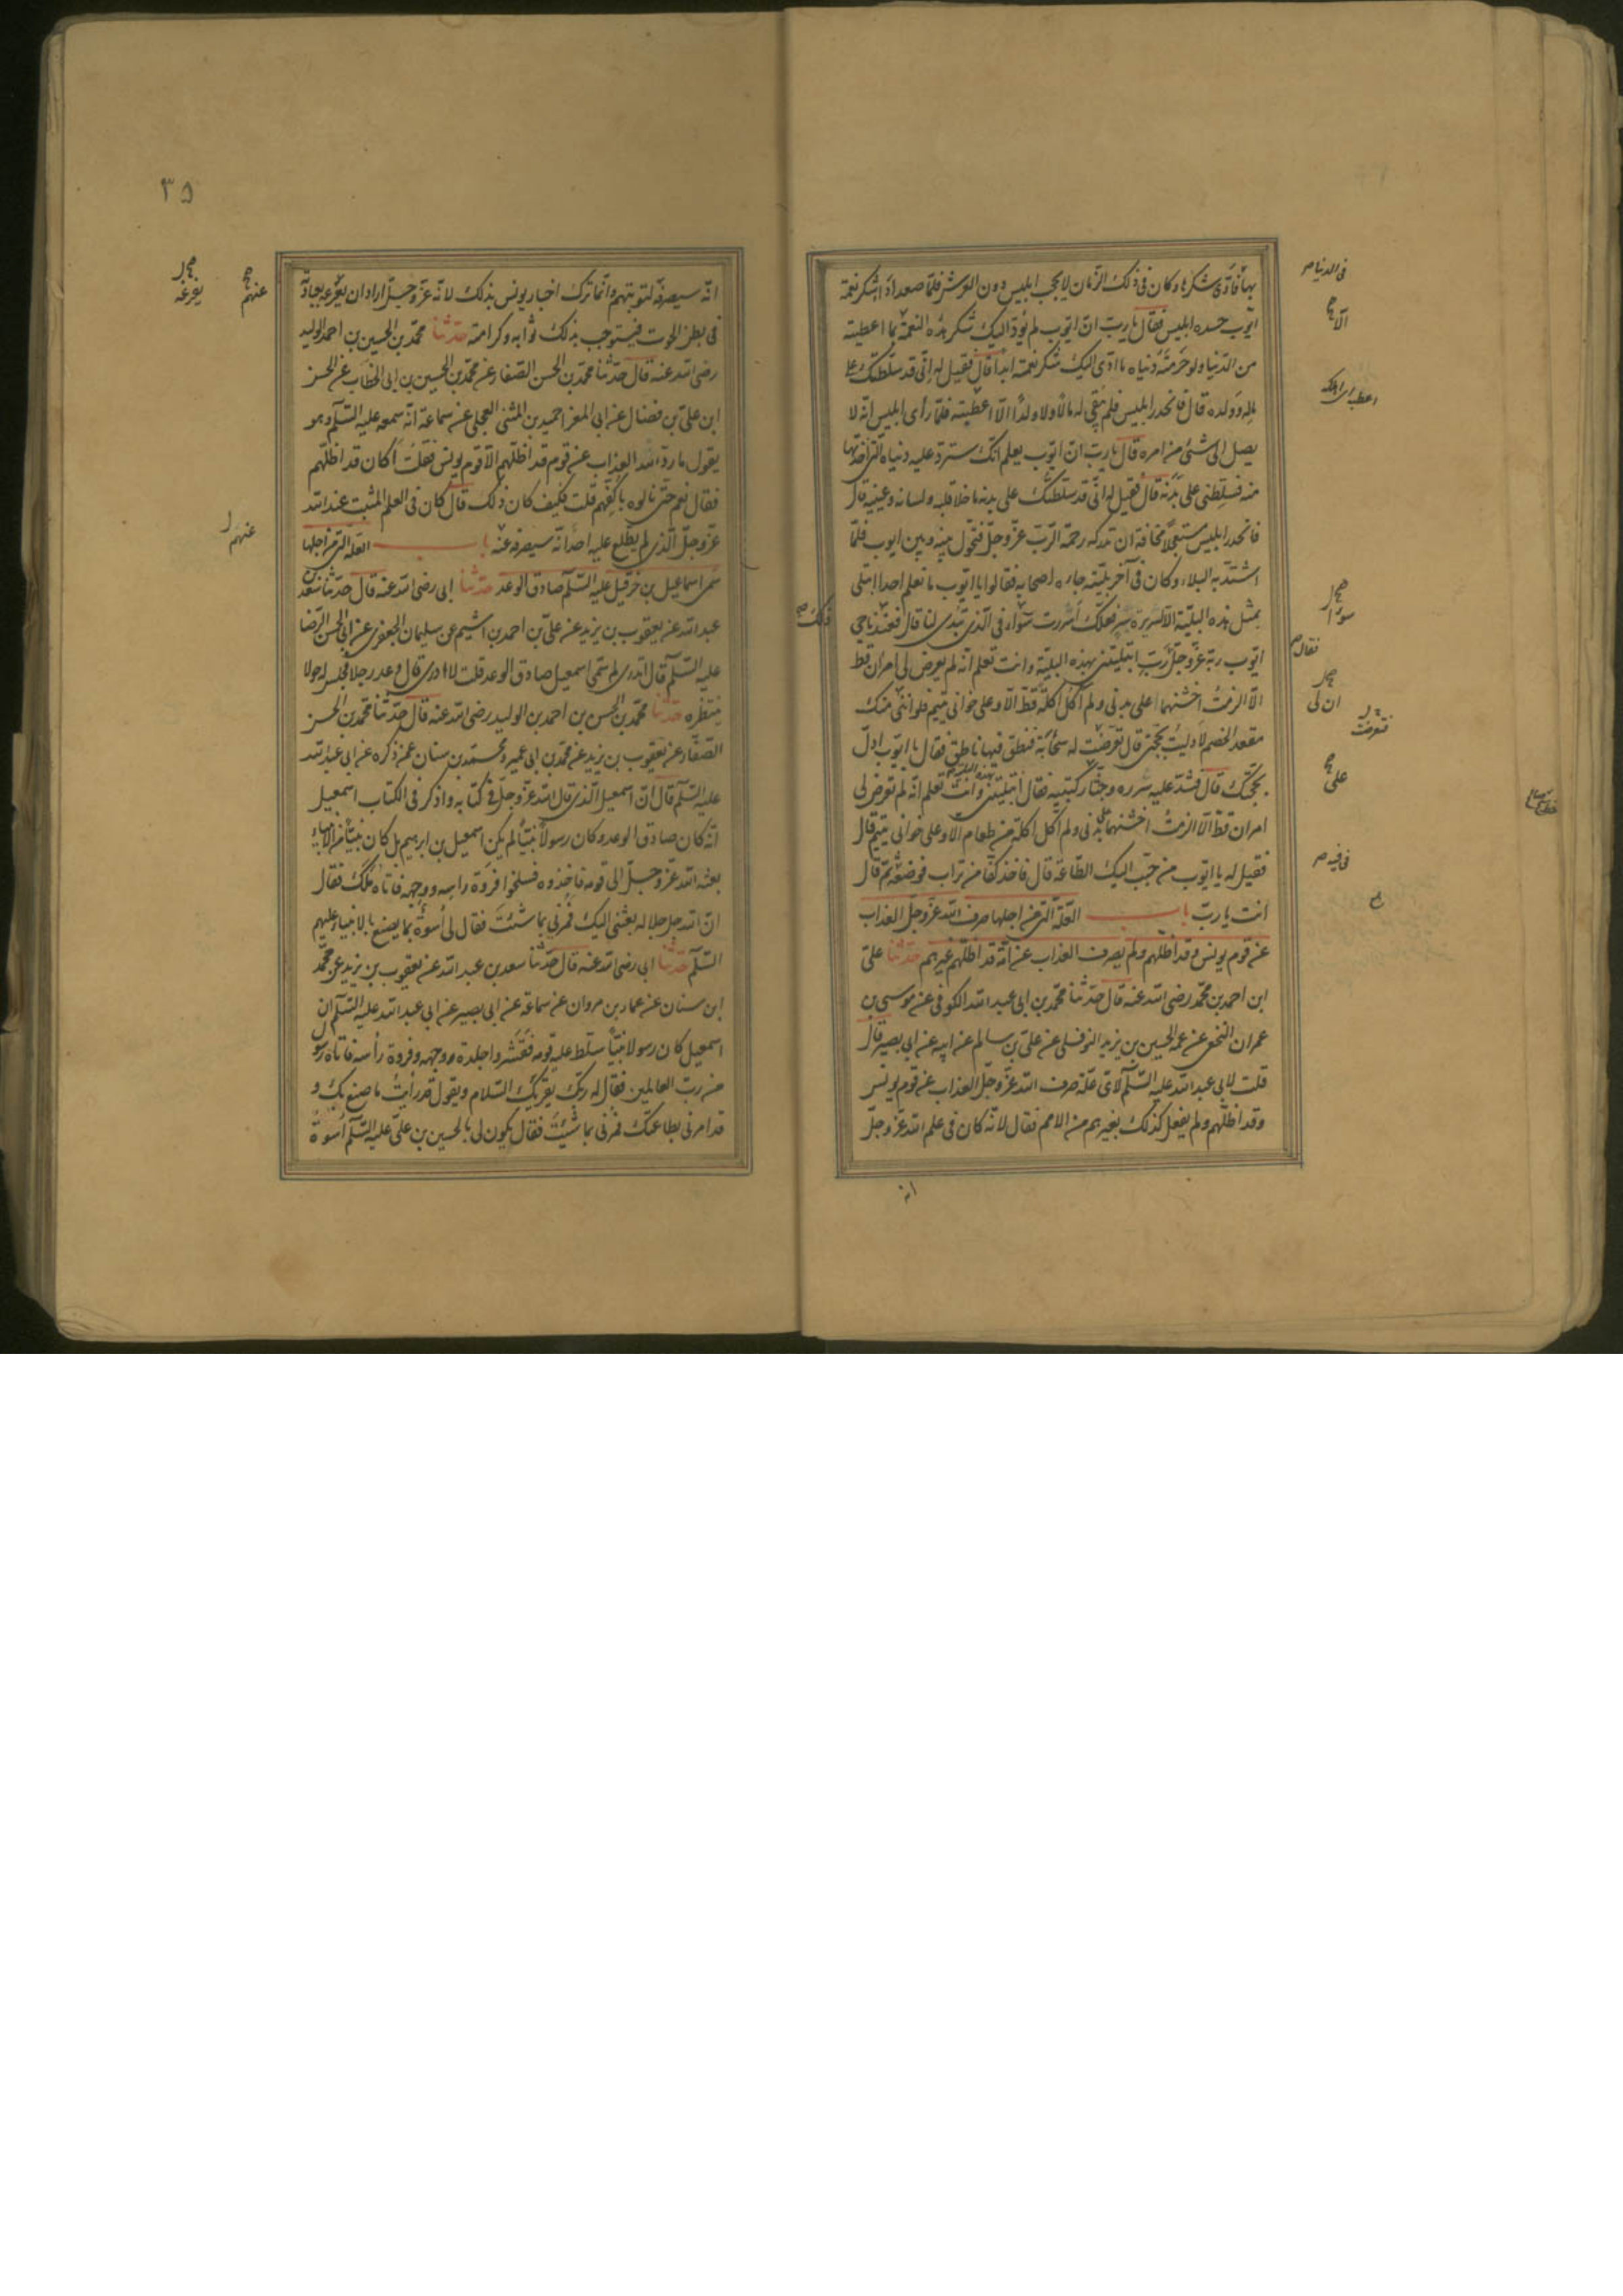 بها فادّى شكرها وكان فى ذلك الزمان لا يحجب ابليس دون العرش فلمّا صعد اداء شكر نعمة
ايّوب حسده ابليس فقال يا ربّ انّ ايّوب لم يؤدّ اليك شكر هذه النعمة بما اعطيته
من الدّنيا ولو حرمته دنياه ما ادّى اليك شكر نعمة ابدا قال فقيل له انّى قد سلّطتك على
ماله وولده قال فانحدر ابليس فلم يبقى له مالا ولا ولدًا الّا اعطبته فلمّا راى ابليس انّه لا
يصل الى شئ من امره قال يا ربّ انّ ايّوب يعلم انّك ستردّ عليه دنياه التى اخذتها
منه فسلّطنى على بدنه قال فقيل له انّى قد سلّطتك على بدنه ما خلا قلبه ولسانه وعينيه قال
فانحدر ابليس مستعجلا مخافة ان تدركه رحمة الربّ عزّ وجلّ فتحول بينه وبين ايوب فلمّا
اشتدّ به البلاء وكان فى آخر بليّته جاءه اصحابه فقالوا يا ايّوب ما نعلم احدا ابتلى
بمثل هذه البليّة الّا لسريرة شر فلعلّك اسررت سوّاء فى الّذى تبدى لنا قال فعند ذلك ناجى
ايّوب ربّه عزّ وجلّ ربّ ابتليتنى بهذه البليّة وانت تعلم انّه لم يعرض لى امران قط
الّا الزمتُ اخشنهما على بدنى ولم آكل اكلة قط الّا وعلى خوانى يتيم فلو انّ لى منك
مقعد الخصم لادليت بحجّتى قال فعرضت له سحابة فنطق فيها ناطق فقال يا ايّوب ادل
بحجّتك قال فشدّ عليه مئزره وجثا ركبتيه فقال ابتليتنى وانت تعلم انّه لم تعرض لى
امران قطّ الّا الزمتُ اخشنهما على بدنى ولم آكل اكلة من طعام الّا وعلى خوانى يتيم قال
فقيل له يا ايّوب من حبّب اليك الطّاعة قال فاخذ كفّا من تراب فوضعه ثم قال
انت يا ربّ باب العلّة التى من اجلها صرف الله عزّ وجلّ العذاب
عن قوم يونس وقد اظلّهم ولم يصرف العذاب عن امّة قد اظلّهم غيرهم حدّثنا علىّ
ابن احمد بن محمّد رضى الله عنه قال حدّثنا محمّد بن ابى عبد الله الكوفى عن موسى بن
عمران النّخعى عن عمّه الحسين بن يزيد النوفلى عن علىّ بن سالم عن ابيه عن ابى بصير قال
قلت لابى عبد الله عليه السّلم لاىّ علّة صرف الله عزّ وجلّ العذاب عن قوم يونس
وقد اظلّهم ولم يفعل كذلك بغيرهم من الامم فقال لانّه كان فى علم الله عزّ وجلّ
انه
فى الدنيا
الّا
فقال
ان لى
فعرضت
على
فى فيه
ذلك
٣٥
انّه سيصرفه لتوبتهم وانّما ترك اخبار يونس بذلك لانّه عزّ وجلّ اراد ان يفرّغه بعبادته
فى بطن الحوت فيستوجب بذلك ثوابه وكرامته حدّثنا محمّد بن الحسين بن احمد الوليد
رضى الله عنه قال حدّثنا محمّد بن الحسن الصّفار عن محمّد بن الحسين بن ابى الخطّاب عن الحسن
ابن علىّ بن فضّال عن ابى المغرا حميد بن المثنى العجلى عن سماعة انّه سمعه عليه السّلم وهو
يقول ما ردّ الله العذاب عن قوم قد اظلّهم الّا قوم يونس فقلت أكان قد اظلّهم
فقال نعم حتّى نالوه باكفّهم قلت فكيف كان ذلك قال كان فى العلم المثبت عند الله
عزّ وجلّ الّذى لم يطّلع عليه احد انّه سيصرفه عنه باب العلّة التى من اجلها
سمّى اسماعيل بن حزقيل عليه السّلم صادق الوعد حدّثنا ابى رضى الله عنه قال حدّثنا سعد بن
عبد الله عن يعقوب بن يزيد عن علىّ بن احمد بن اشيم عن سليمان الجعفرى عن ابى الحسن الرّضا
عليه السّلم قال اتدرى لم سمّى اسمعيل صادق الوعد قلت لا ادرى قال وعد رجلا فجلس له حولا
ينتظره حدّثنا محمّد بن الحسن بن احمد بن الوليد رضى الله عنه قال حدّثنا محمّد بن الحسن
الصّفّار عن يعقوب بن يزيد عن محمّد بن ابى عمير ومحمّد بن سنان عمّن ذكره عن ابى عبد الله
عليه السّلم قال انّ اسمعيل الّذى قال الله عزّ وجلّ فى كتابه واذكر فى الكتاب اسمعيل
انّه كان صادق الوعد وكان رسولا نبيّا لم يكن اسمعيل بن ابرهيم بل كان نبيّا من الانبياء
بعثه الله عزّ وجلّ الى قومه فاخذوه فسلخوا فروة راسه ووجهه فاتاه ملك فقال
انّ الله جل جلاله بعثنى اليك فمرنى بما شئت فقال لى اسوة بما يصنع بالانبياء عليهم
السّلم حدّثنا ابى رضى الله عنه قال حدّثنا سعد بن عبد الله عن يعقوب بن يزيد عن محمّد
ابن سنان عن عمار بن مروان عن سماعة عن ابى بصير عن ابى عبد الله عليه السّلم ان
اسمعيل كان رسولا نبيّا سلّط عليه قومه فقشروا جلدة وجهه وفروة رأسه فاتاه رسول
من ربّ العالمين فقال له ربّك يقرئك السّلام ويقول قد رأيت ما صنع بك و
قد امرنى بطاعتك فمرنى بما شئت فقال يكون لى بالحسين بن علىّ عليه السّلم اسوة
عنهم
يفرغه
عنهم